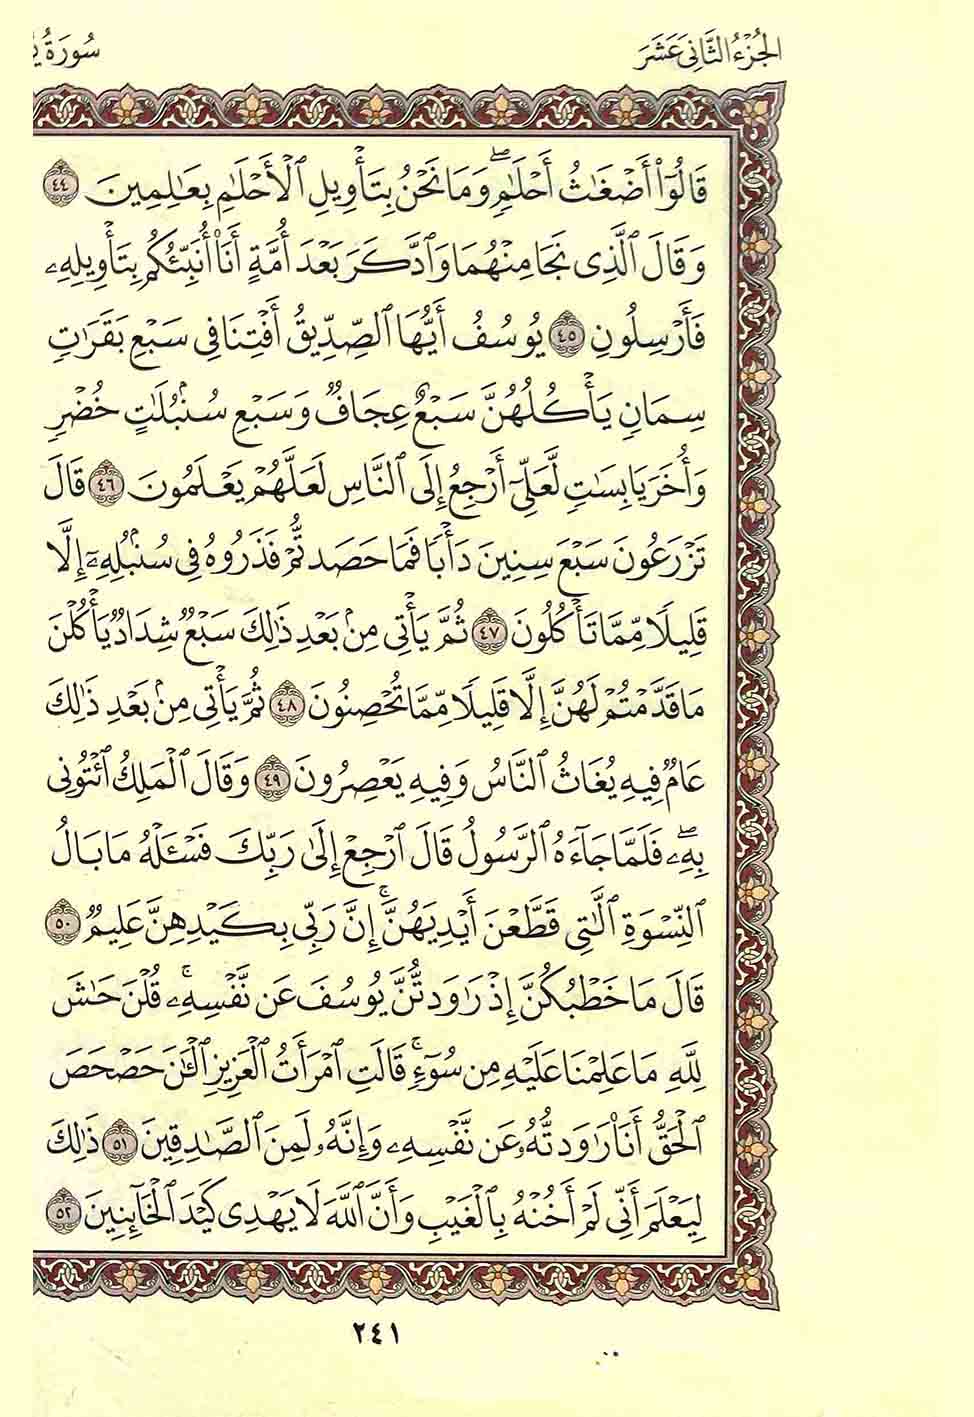 الجُزْءُ الثَّانِيَ عَشَرَ
سُورَةُ
قَالُوٓاْ أَضْغَٰثُ أَحْلَٰمٖۖ وَمَا نَحْنُ بِتَأْوِيلِ ٱلْأَحْلَٰمِ بِعَٰلِمِينَ ٤٤
وَقَالَ ٱلَّذِى نَجَا مِنْهُمَا وَٱدَّكَرَ بَعْدَ أُمَّةٍ أَنَا۠ أُنَبِّئُكُم بِتَأْوِيلِهِۦ
فَأَرْسِلُونِ ٤٥ يُوسُفُ أَيُّهَا ٱلصِّدِّيقُ أَفْتِنَا فِى سَبْعِ بَقَرَٰتٖ
سِمَانٖ يَأْكُلُهُنَّ سَبْعٌ عِجَافٞ وَسَبْعِ سُنۢبُلَٰتٍ خُضْرٖ
وَأُخَرَ يَابِسَٰتٖ لَّعَلِّىٓ أَرْجِعُ إِلَى ٱلنَّاسِ لَعَلَّهُمْ يَعْلَمُونَ ٤٦ قَالَ
تَزْرَعُونَ سَبْعَ سِنِينَ دَأَبٗا فَمَا حَصَدتُّمْ فَذَرُوهُ فِى سُنۢبُلِهِۦٓ إِلَّا
قَلِيلٗا مِّمَّا تَأْكُلُونَ ٤٧ ثُمَّ يَأْتِى مِنۢ بَعْدِ ذَٰلِكَ سَبْعٞ شِدَادٞ يَأْكُلْنَ
مَا قَدَّمْتُمْ لَهُنَّ إِلَّا قَلِيلٗا مِّمَّا تُحْصِنُونَ ٤٨ ثُمَّ يَأْتِى مِنۢ بَعْدِ ذَٰلِكَ
عَامٞ فِيهِ يُغَاثُ ٱلنَّاسُ وَفِيهِ يَعْصِرُونَ ٤٩ وَقَالَ ٱلْمَلِكُ ٱئْتُونِى
بِهِۦۖ فَلَمَّا جَآءَهُ ٱلرَّسُولُ قَالَ ٱرْجِعْ إِلَىٰ رَبِّكَ فَسْـَٔلْهُ مَا بَالُ
ٱلنِّسْوَةِ ٱلَّٰتِى قَطَّعْنَ أَيْدِيَهُنَّۚ إِنَّ رَبِّى بِكَيْدِهِنَّ عَلِيمٞ ٥٠
قَالَ مَا خَطْبُكُنَّ إِذْ رَٰوَدتُّنَّ يُوسُفَ عَن نَّفْسِهِۦۚ قُلْنَ حَٰشَ
لِلَّهِ مَا عَلِمْنَا عَلَيْهِ مِن سُوٓءٖۚ قَالَتِ ٱمْرَأَتُ ٱلْعَزِيزِ ٱلْـَٰٔنَ حَصْحَصَ
ٱلْحَقُّ أَنَا۠ رَٰوَدتُّهُۥ عَن نَّفْسِهِۦ وَإِنَّهُۥ لَمِنَ ٱلصَّٰدِقِينَ ٥١ ذَٰلِكَ
لِيَعْلَمَ أَنِّى لَمْ أَخُنْهُ بِٱلْغَيْبِ وَأَنَّ ٱللَّهَ لَا يَهْدِى كَيْدَ ٱلْخَآئِنِينَ ٥٢
٢٤١